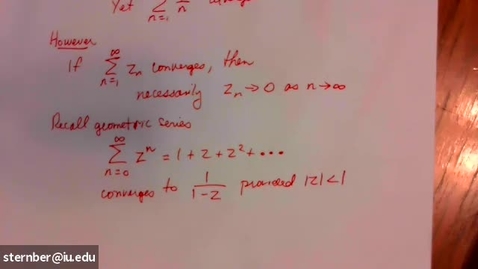 Yet ∑_{n=1}^∞ 1/n diverges
However
If ∑_{n=1}^∞ z_n converges, then
necessarily z_n → 0 as n → ∞
Recall geometric series
∑_{n=0}^∞ z^n = 1 + z + z^2 + ...
converges to 1/(1-z) provided |z| < 1
sternber@iu.edu